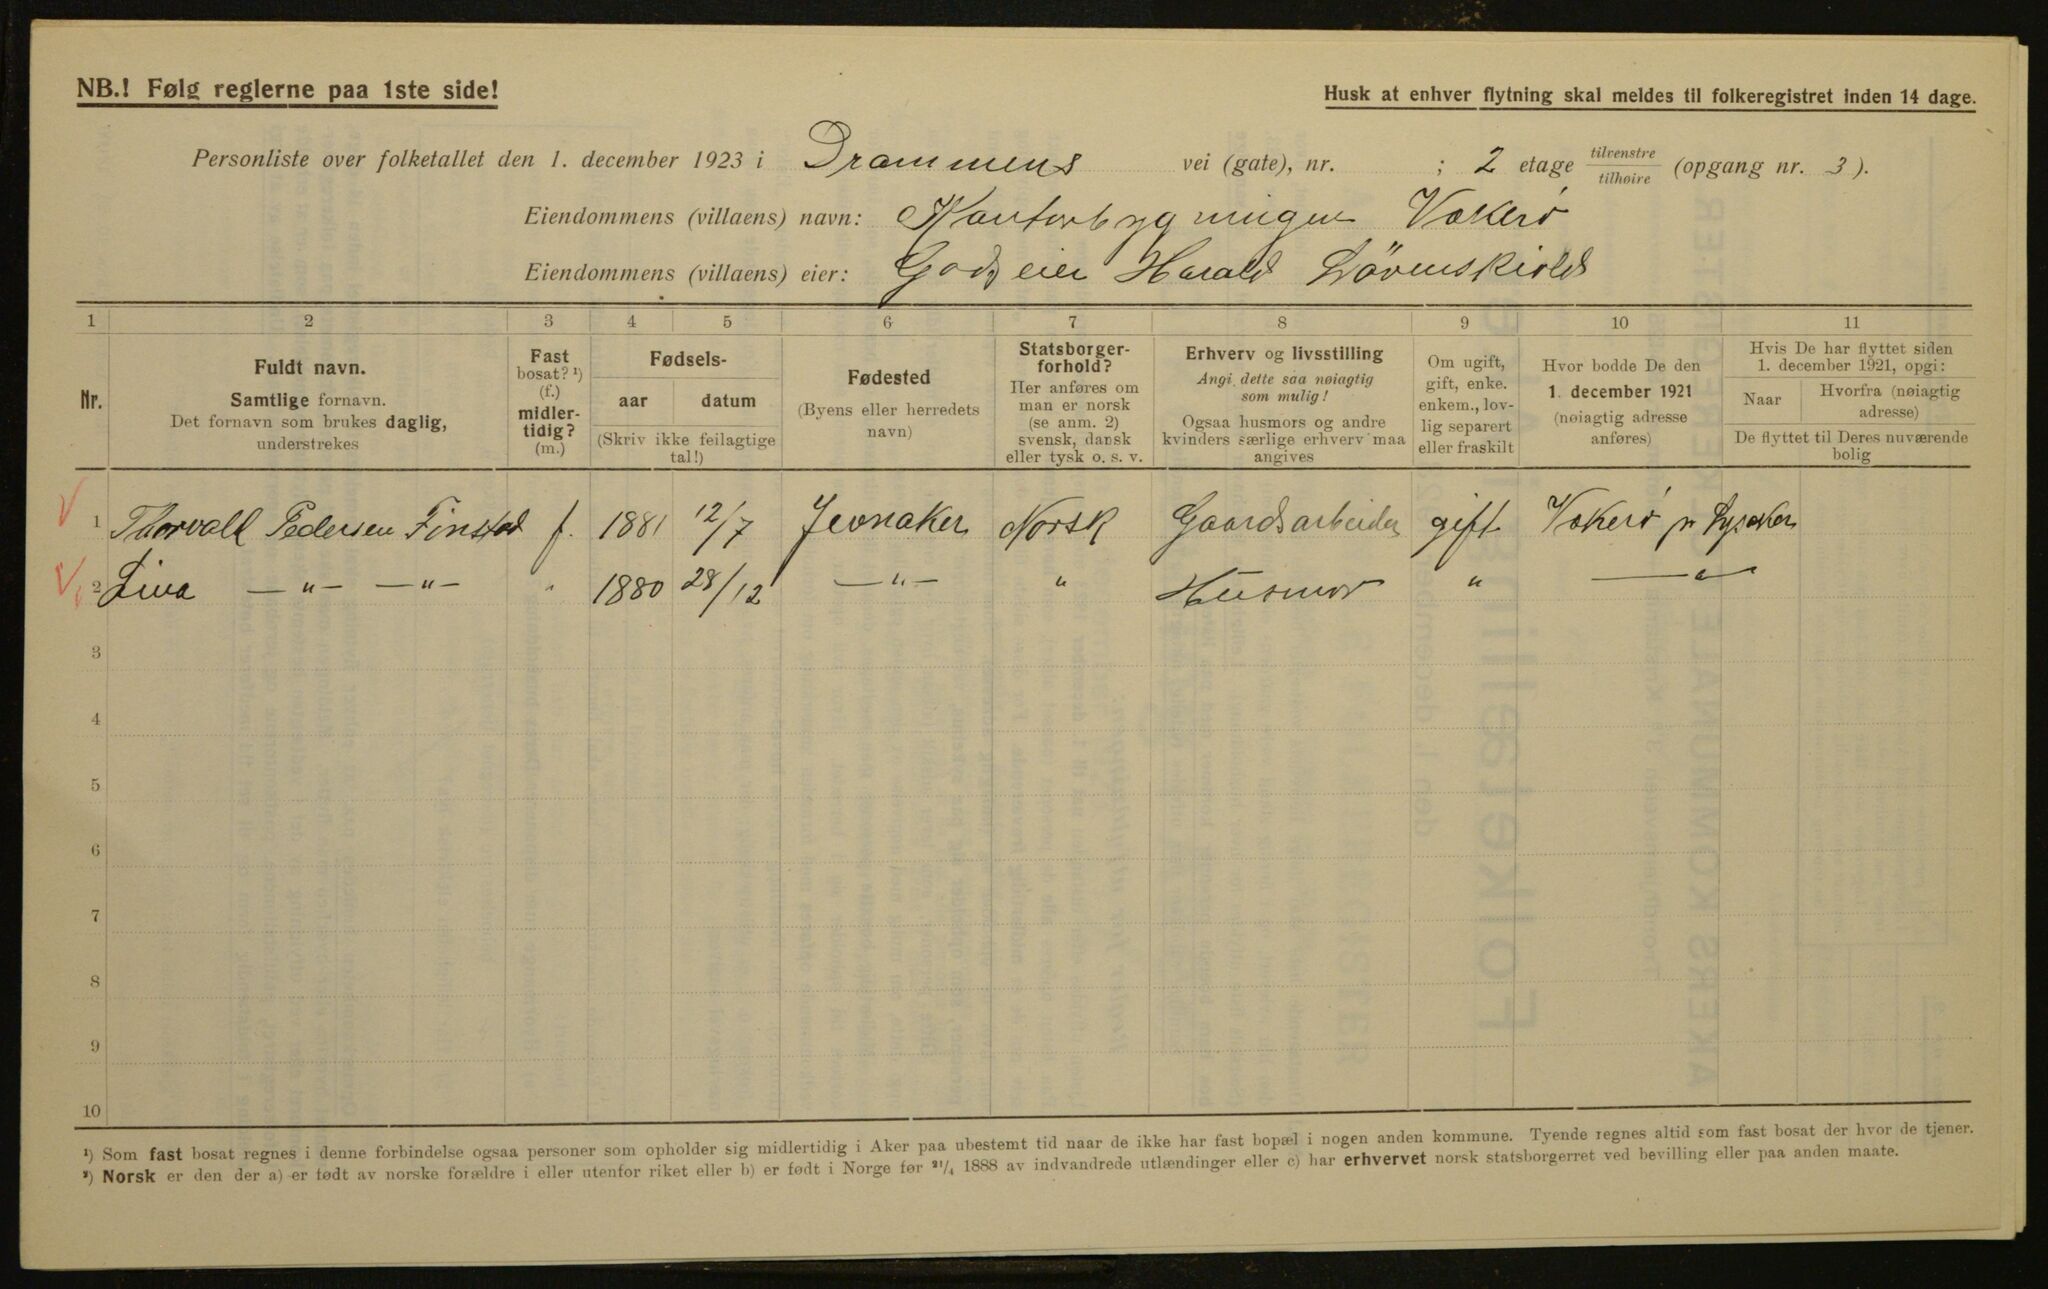 NB.! Følg reglerne paa 1ste side!
Husk at enhver flytning skal meldes til folkeregistret inden 14 dage.
Personliste over folketallet den 1. december 1923 i Drammens vei (gate), nr. ; 2 etage tilvenstre tilhøire (opgang nr. 3).
Eiendommens (villaens) navn: Kontorbygningen Vækerø
Eiendommens (villaens) eier: Godseier Harald Løvenskiold
1 2 3 4 5 6 7 8 9 10 11
Nr.
Fuldt navn.
Samtlige fornavn.
Det fornavn som brukes daglig,
understrekes
Fast
bosat? ¹)
(f.)
midler-
tidig?
(m.)
Fødsels-
aar datum
(Skriv ikke feilagtige
tal!)
Fødested
(Byens eller herredets
navn)
Statsborger-
forhold?
Her anføres om
man er norsk
(se anm. 2)
svensk, dansk
eller tysk o. s. v.
Erhverv og livsstilling
Angi dette saa nøiagtig
som mulig!
Ogsaa husmors og andre
kvinders særlige erhverv maa
angives
Om ugift,
gift, enke.
enkem., lov-
lig separert
eller fraskilt
Hvor bodde De den
1. december 1921
(nøiagtig adresse
anføres)
Hvis De har flyttet siden
1. december 1921, opgi:
Naar
Hvorfra (nøiagtig
adresse)
De flyttet til Deres nuværende
bolig
1 Thorvald Pedersen Finstad f. 1881 12/7 Jevnaker Norsk Gaardsarbeider gift Vækerø pr Lysaker
2 Lina —"— —"— " 1880 28/12 —"— " Husmor " —"—
3
4
5
6
7
8
9
10
¹) Som fast bosat regnes i denne forbindelse ogsaa personer som opholder sig midlertidig i Aker paa ubestemt tid naar de ikke har fast bopæl i nogen anden kommune. Tyende regnes altid som fast bosat der hvor de tjener.
²) Norsk er den der a) er født av norske forældre i eller utenfor riket eller b) er født i Norge før ²¹/₄ 1888 av indvandrede utlændinger eller c) har erhvervet norsk statsborgerret ved bevilling eller paa anden maate.